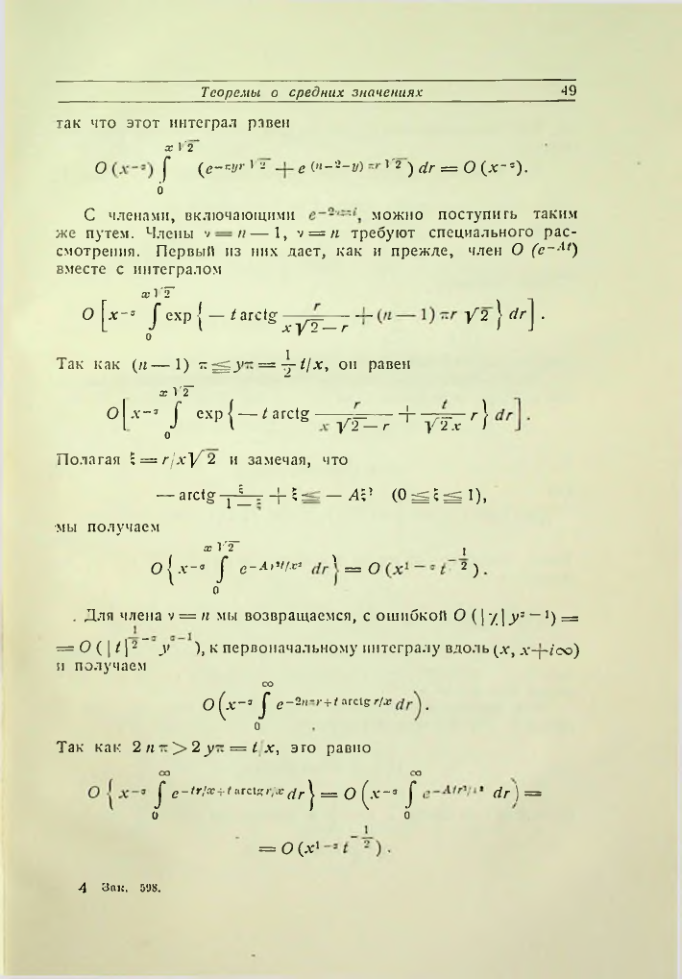 Теоремы о средних значениях 49
так что этот интеграл равен
O (x^{-σ}) ∫_0^{x√2} (e^{-πyr√2} + e^{(n-2-y)πr√2}) dr = O (x^{-σ}).
С членами, включающими e^{-2νπzi}, можно поступить таким
же путем. Члены ν = n — 1, ν = n требуют специального рас-
смотрения. Первый из них дает, как и прежде, член O (e^{-At})
вместе с интегралом
O [x^{-σ} ∫_0^{x√2} exp { — t arctg \frac{r}{x√2 — r} + (n — 1) πr √2 } dr] .
Так как (n — 1) π ≦ yπ = \frac{1}{2} t/x, он равен
O [x^{-σ} ∫_0^{x√2} exp { — t arctg \frac{r}{x √2 — r} + \frac{t}{√2 x} r } dr] .
Полагая ξ = r/x√2 и замечая, что
— arctg \frac{ξ}{1 — ξ} + ξ ≦ — Aξ² (0 ≦ ξ ≦ 1),
мы получаем
O { x^{-σ} ∫_0^{x√2} e^{-Ar²t/x²} dr } = O (x^{1-σ} t^{-\frac{1}{2}}) .
Для члена ν = n мы возвращаемся, с ошибкой O ( | χ | y^{σ-1}) =
= O ( | t |^{\frac{1}{2}-σ} y^{σ-1}), к первоначальному интегралу вдоль (x, x+i∞)
и получаем
O (x^{-σ} ∫_0^∞ e^{-2nπr+t arctg r/x} dr) .
Так как 2 n π > 2 yπ = t/x, это равно
O { x^{-σ} ∫_0^∞ e^{-tr/x+t arctg r/x} dr } = O (x^{-σ} ∫_0^∞ e^{-Atr²/x²} dr) =
= O (x^{1-σ} t^{-\frac{1}{2}}) .
4 Зак. 598.